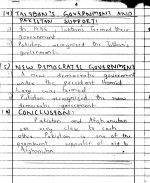 (4) TALIBAN'S GOVERNMENT AND
PAKISTAN SUPPORT:
In 1996, Taliban's formed their
government.
Pakistan recognised the Taliban's
government.
(5) NEW DEMOCRATIC GOVERNMENT:
A new democratic government
under the president Hamid
was formed.
Pakistan recognised the new
democratic government.
CONCLUSION:
Pakistan and Afghanistan
are very close to each
other. Pakistan is one of the
prominent supporter of
Afghanistan.